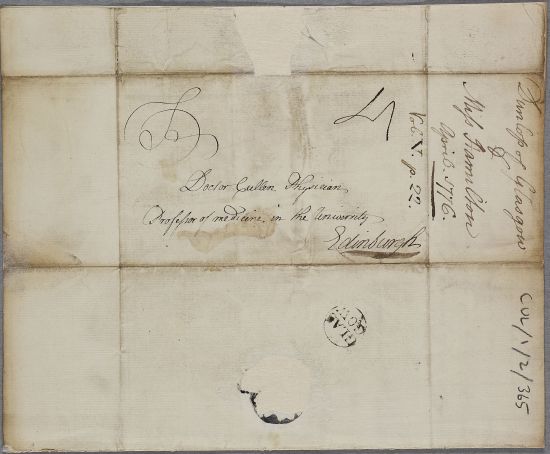 Doctor Cullen Physician
Professor of medicine in the University
Edinburgh
Dunlop of Glasgow
Miss Hamilton
April. 1776.
Vol: V. p. 22.
GLAS
GOW
CUL/1/2/365